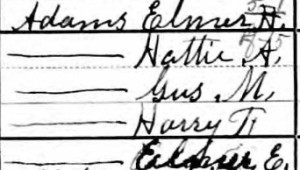 Adams Elmer H.
—— Hattie A.
—— Gus M.
—— Harry T.
—— Elmer E.